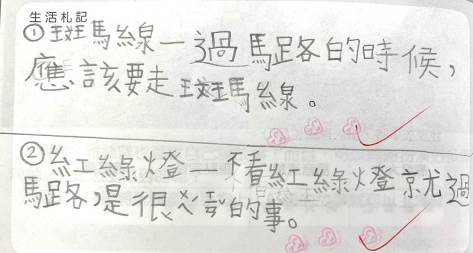 生活札記
①斑馬線—過馬路的時候,
應該要走斑馬線。
②紅綠燈—不看紅綠燈就過
馬路,是很的事。